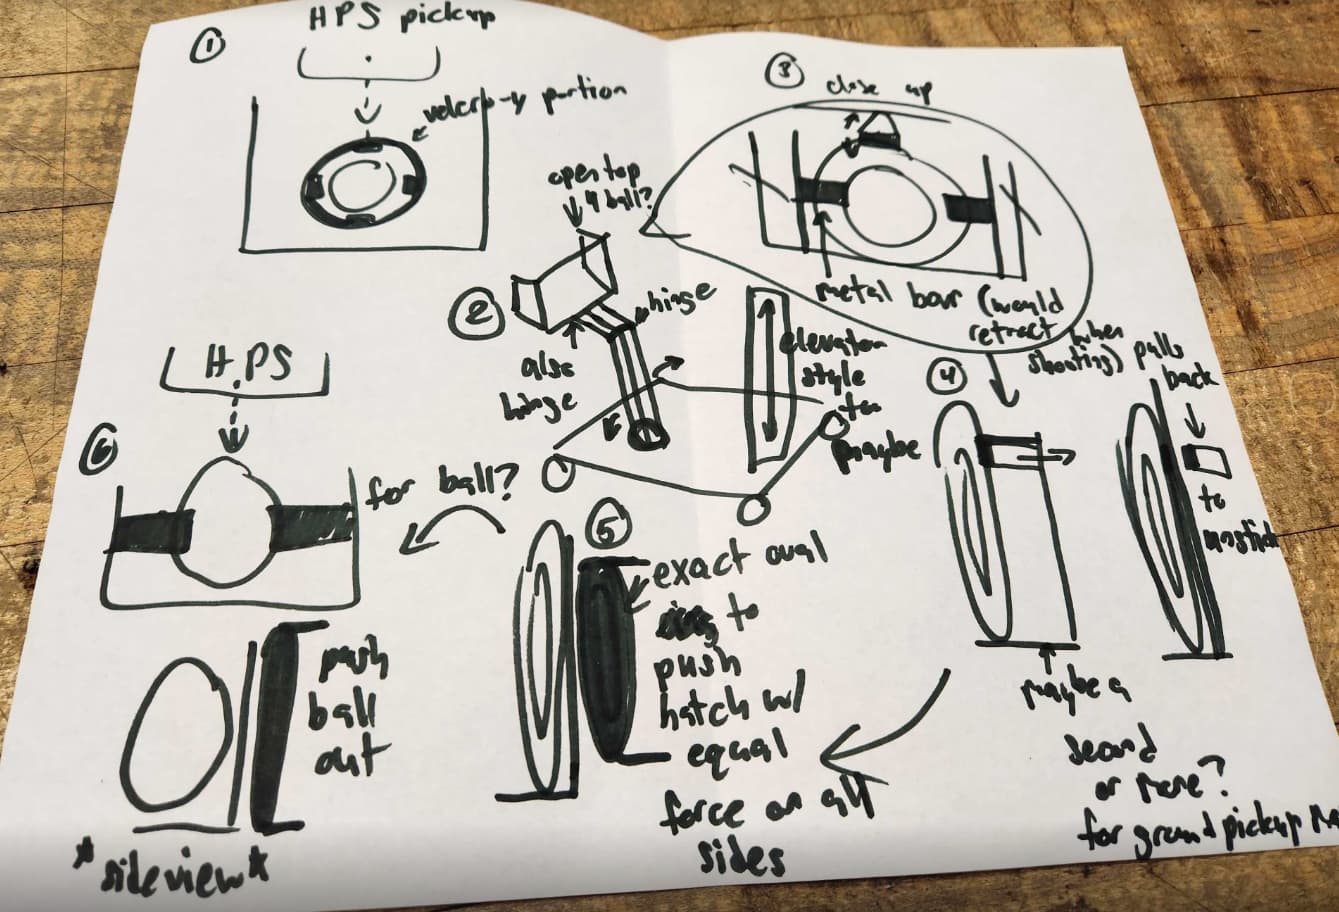 ①
HPS pickup
velcro-y portion
②
open top
4 ball?
hinge
also
hinge
elevator
style
too
maybe
③
close up
metal bar (would
retract when
shooting)
④
pulls
back
to
unstick
maybe a
second
or more?
for ground pickup
⑤
exact oval
to
push
hatch w/
equal
force on all
sides
for ball?
⑥
HPS
push
ball
out
*sideview*